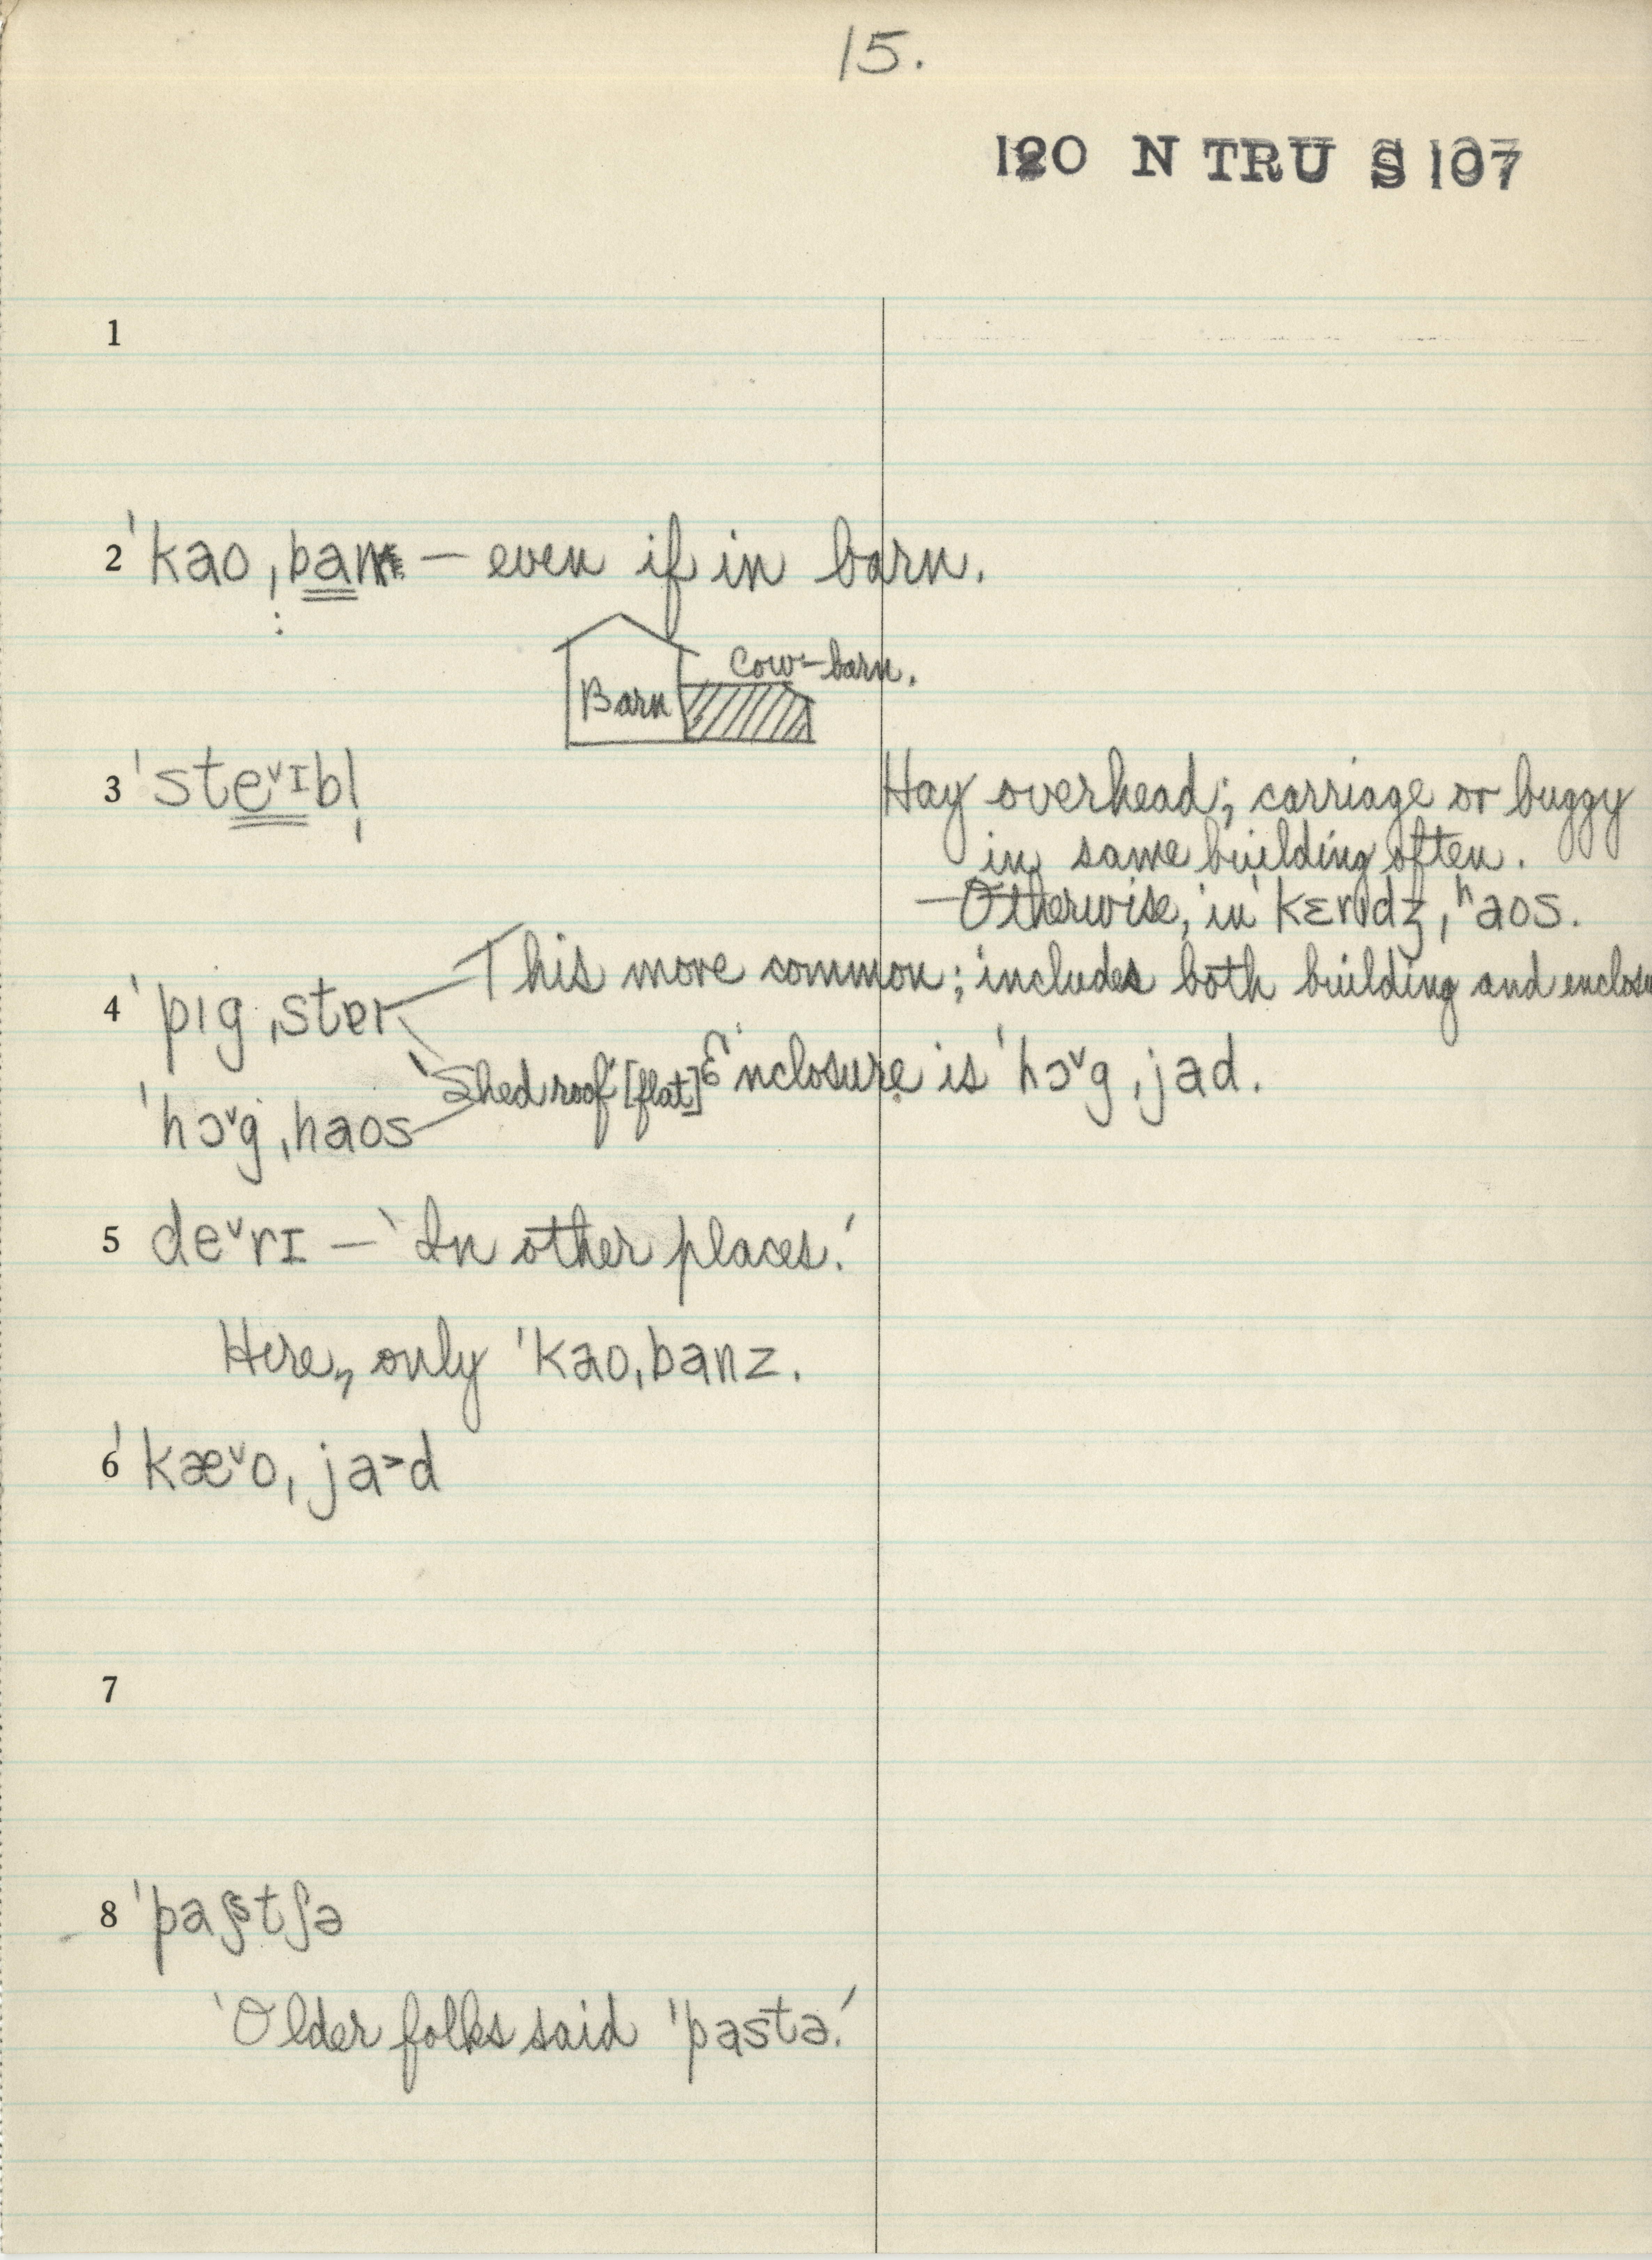 15.
120 N TRU S 107
1
2 ˈkao ˌban — even if in barn.
Cow-barn.
Barn
3 ˈsteˇɪbl̩
Hay overhead; carriage or buggy
in same building often.
— Otherwise, in ˈkɛrɪdʒ ˌhaos.
4 ˈpɪg ˌster This more common; includes both building and enclosu
'Shed roof' [flat] Enclosure is ˈhɔˇg ˌjad.
ˈhɔˇg ˌhaos
5 deˇrɪ — 'In other places.'
Here, only ˈkao ˌbanz.
6 ˈkæˇo ˌja˃d
7
8 ˈpastʃə
'Older folks said ˈpastə.'